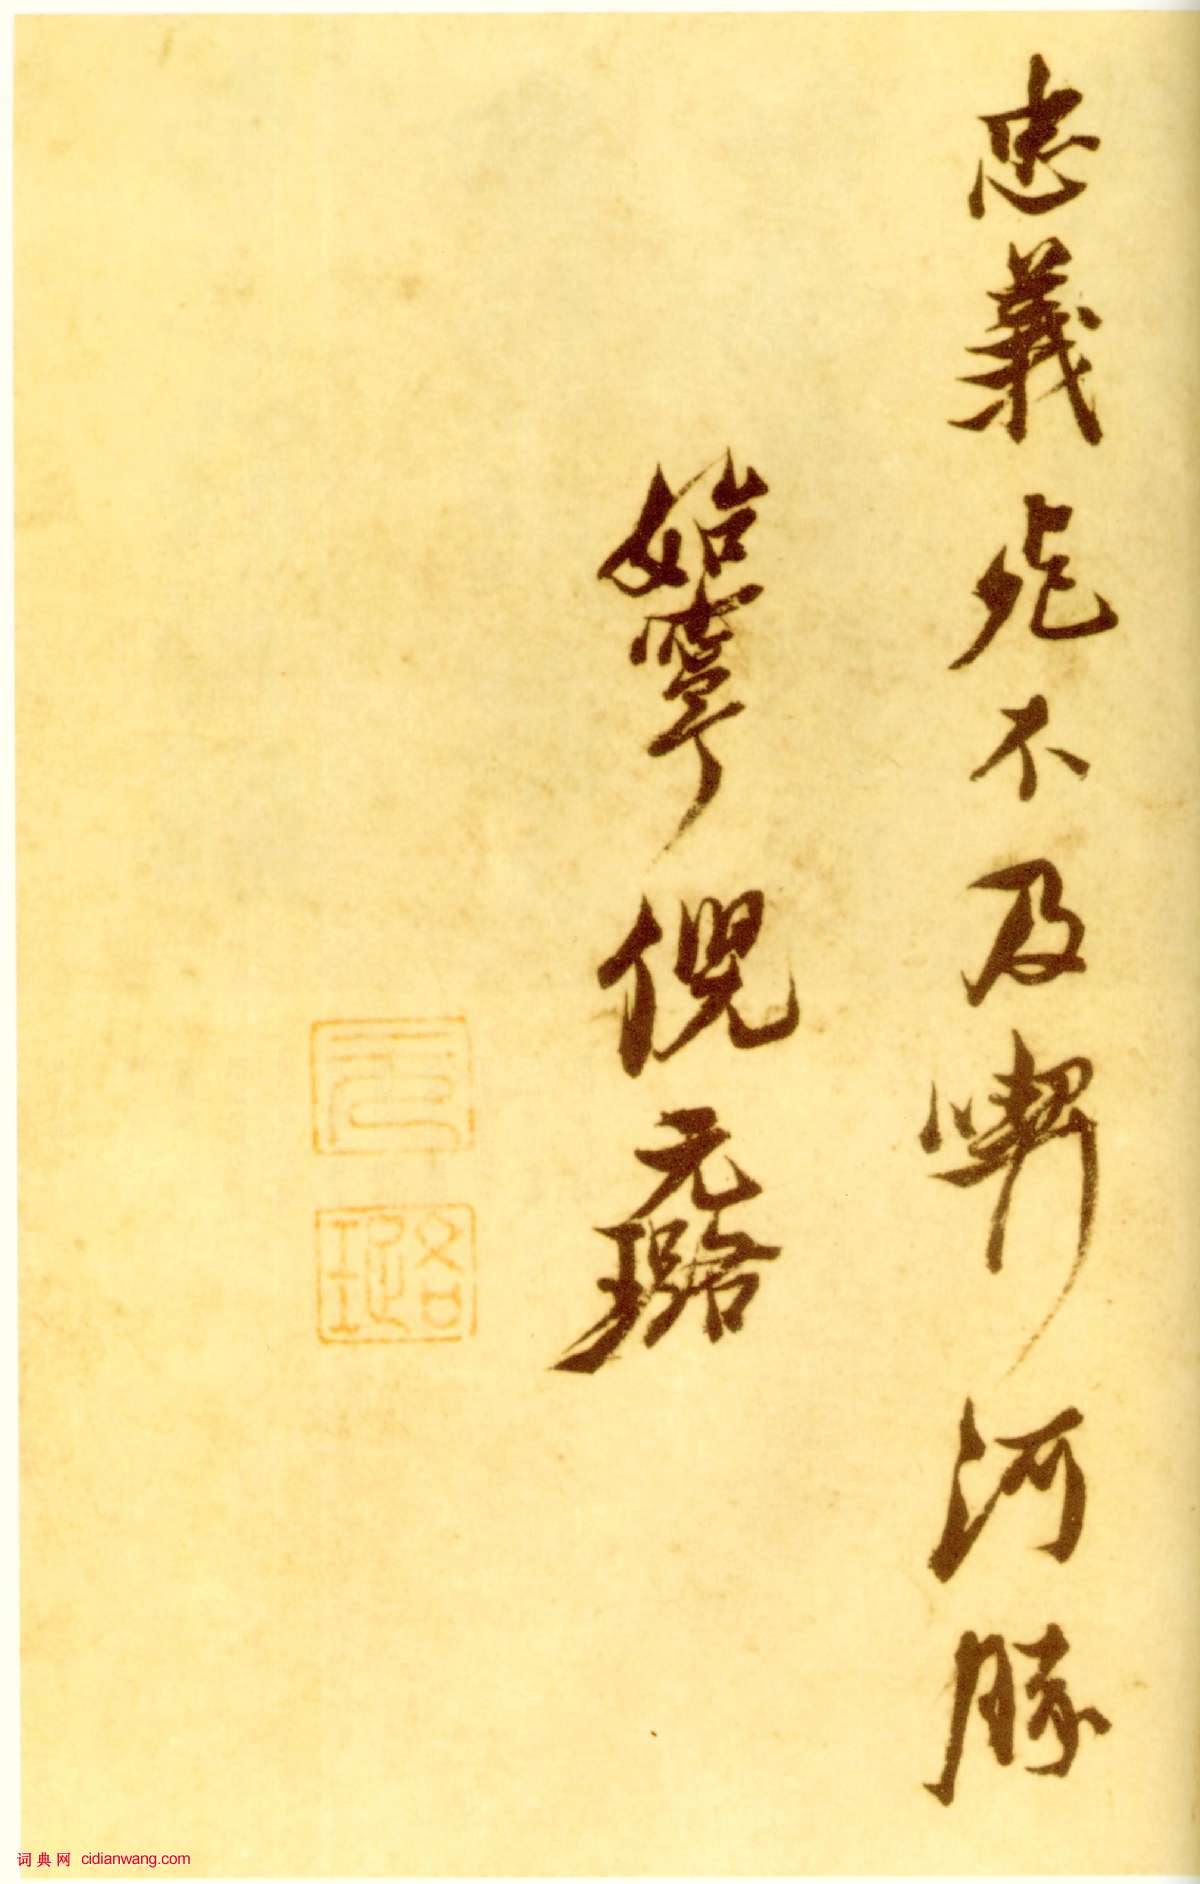 忠義死不及喫河豚
始寧倪元璐
元
璐
词典网 cidianwang.com